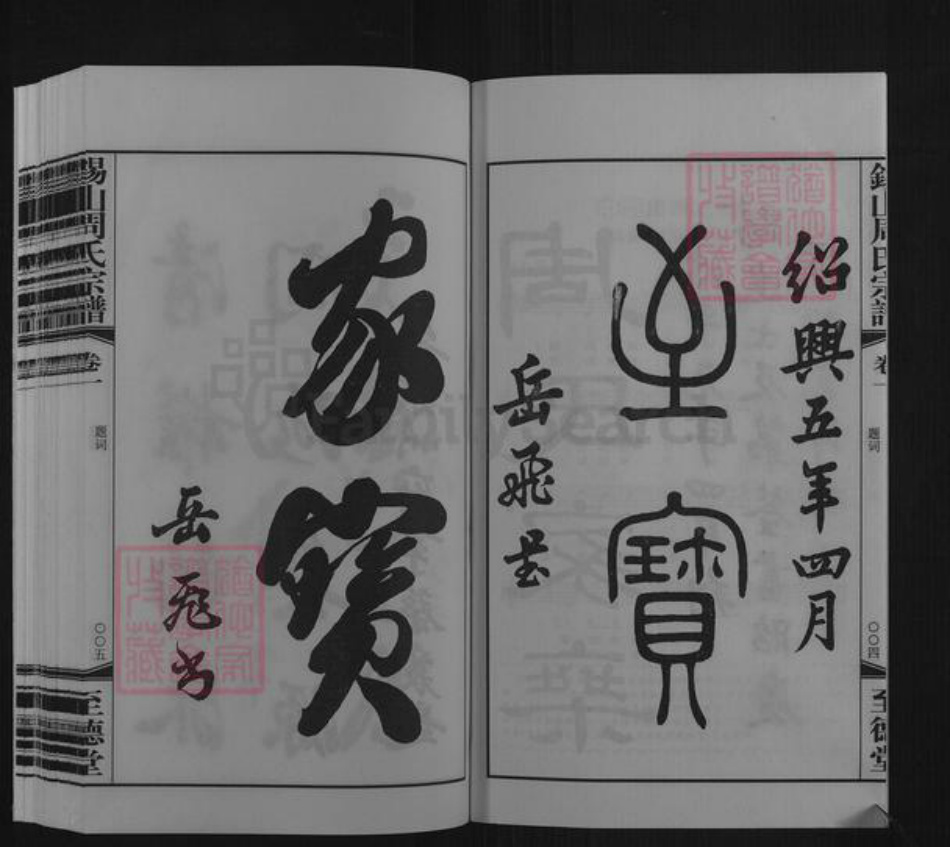 錫山周氏宗譜
卷一
题词
〇〇四
至德堂
紹興五年四月
至寶
岳飛書
家寶
岳飛書
錫山周氏宗譜
卷一
题词
〇〇五
至德堂
FamilySearch